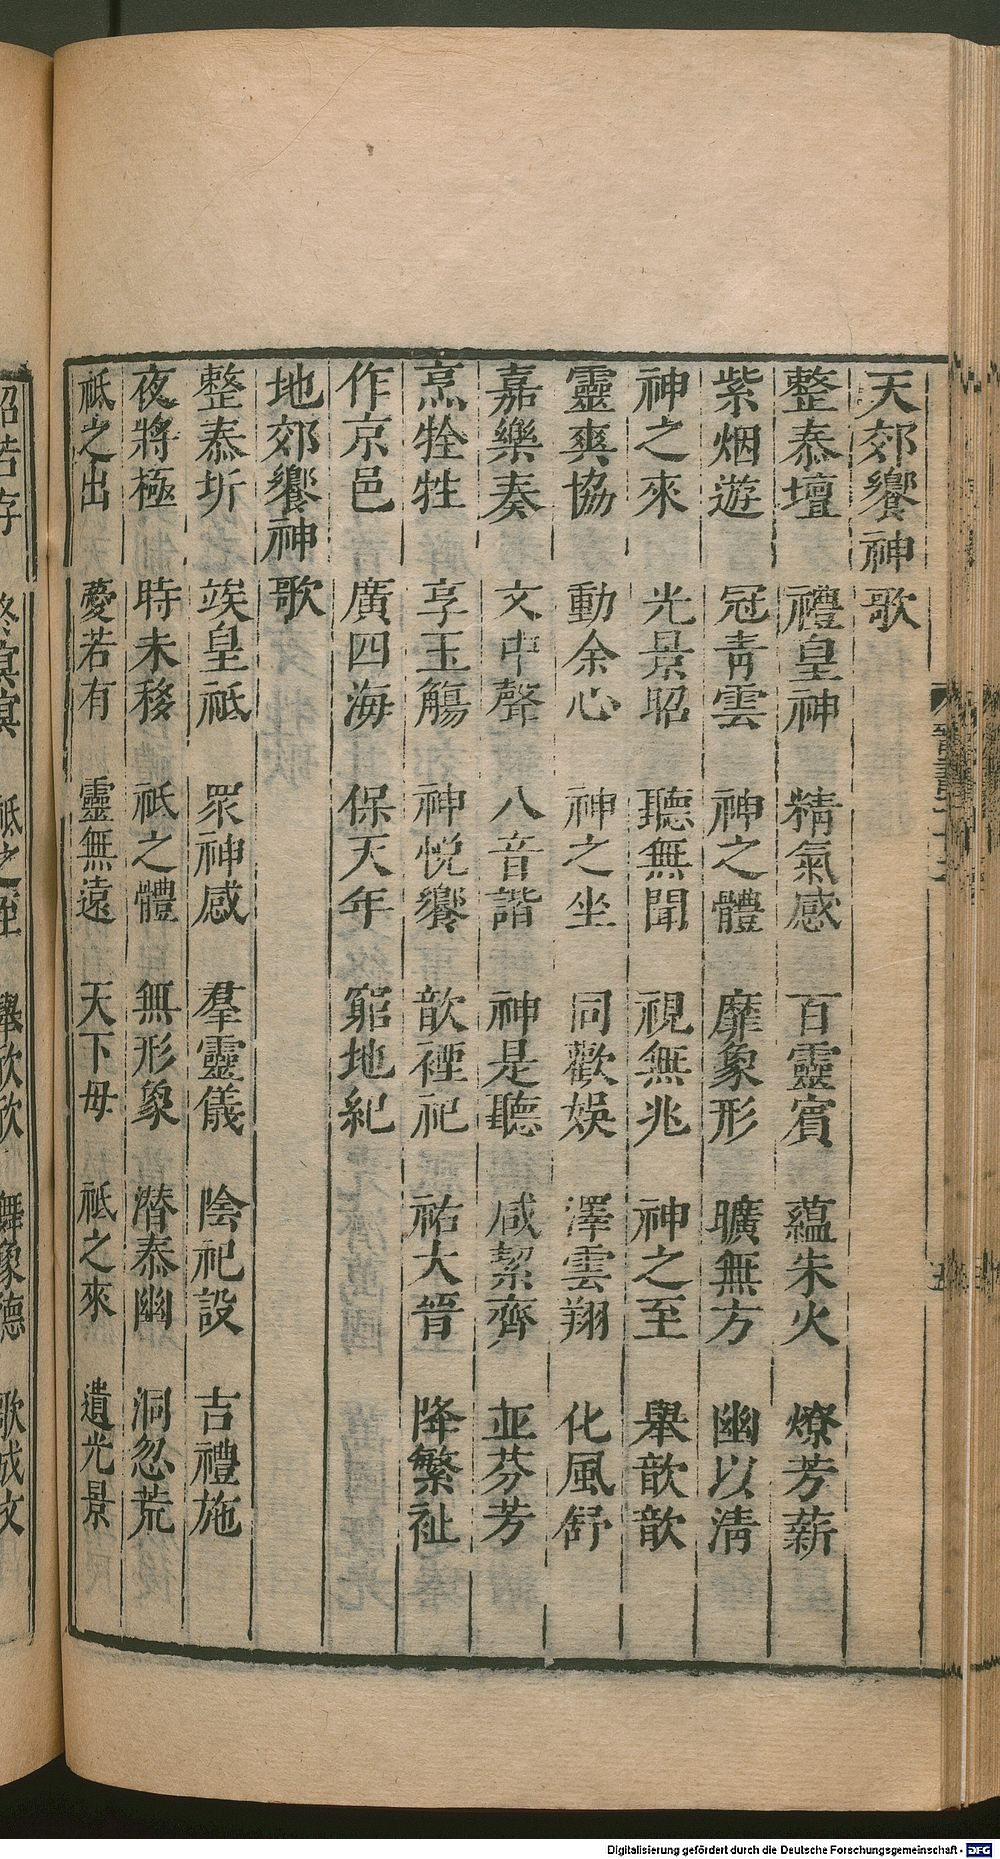 天郊饗神歌
整泰壇 禮皇神 精氣感 百靈賓 蘊朱火 燎芳薪
紫烟遊 冠青雲 神之體 靡象形 曠無方 幽以清
神之來 光景昭 聽無聞 視無兆 神之至 舉歆歆
靈爽協 動余心 神之坐 同歡娛 澤雲翔 化風舒
嘉樂奏 文中聲 八音諧 神是聽 咸絜齊 並芬芳
烹牷牲 享玉觴 神悅饗 歆禋祀 祐大晉 降繁祉
作京邑 廣四海 保天年 窮地紀
地郊饗神歌
整泰圻 竢皇祇 眾神感 羣靈儀 陰祀設 吉禮施
夜將極 時未移 祇之體 無形象 潛泰幽 洞忽荒
祇之出 薆若有 靈無遠 天下母 祗之來 遺光景
昭若存 終冥冥 祗之至 舉欣欣 舞象德 歌成文
晉書二十二
五
Digitalisierung gefördert durch die Deutsche Forschungsgemeinschaft - DFG